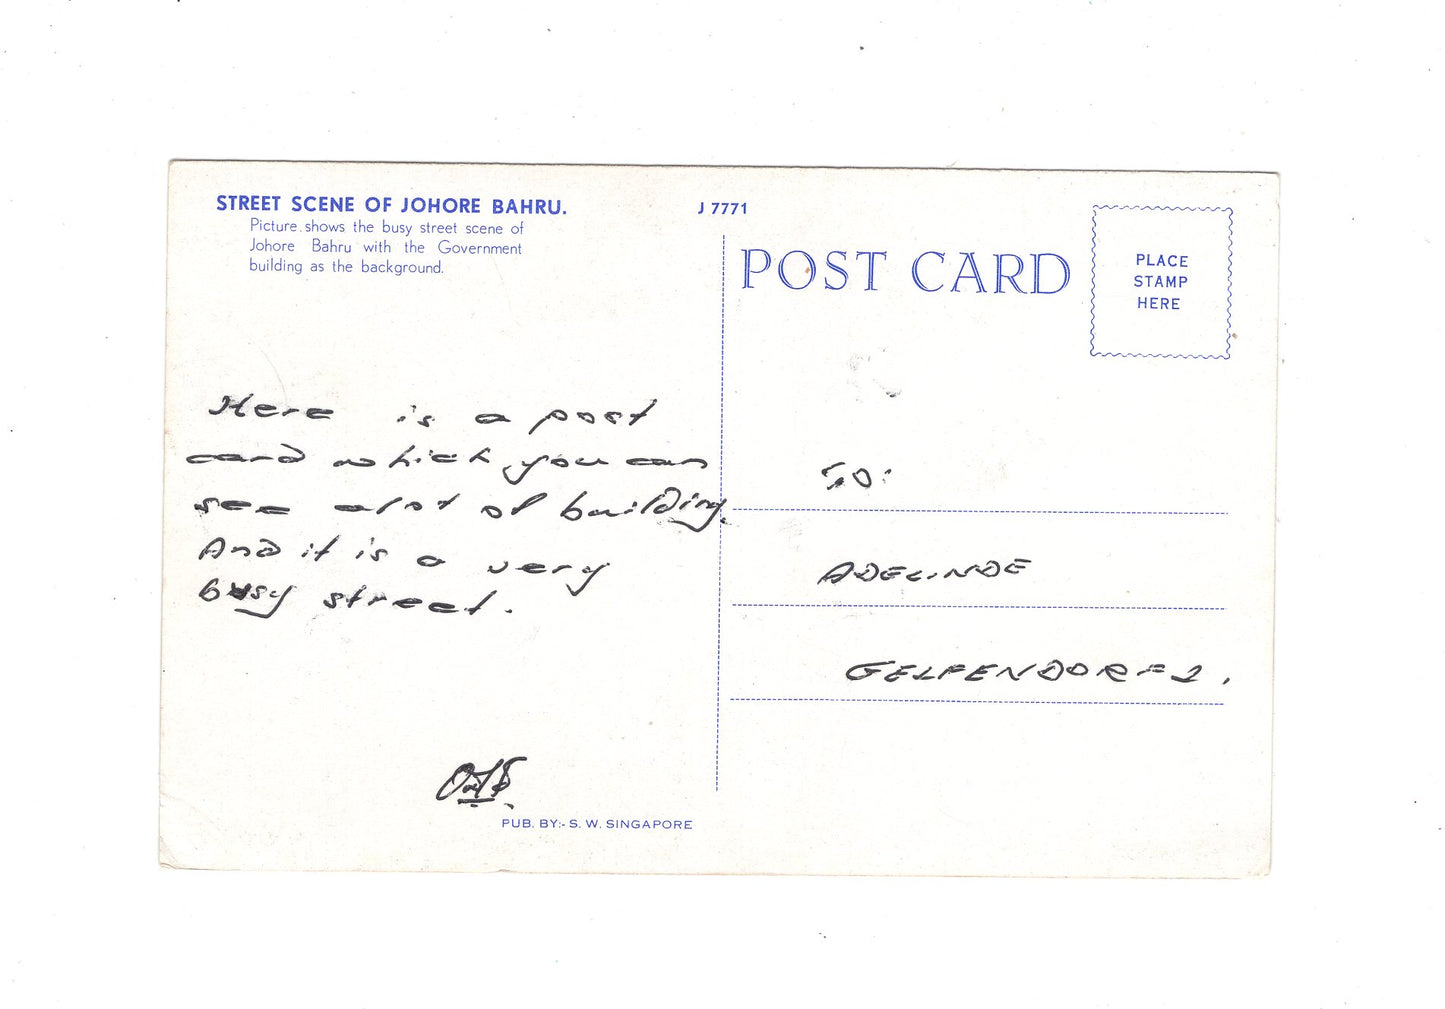 STREET SCENE OF JOHORE BAHRU.
Picture shows the busy street scene of
Johore Bahru with the Government
building as the background.
J 7771
POST CARD
PLACE
STAMP
HERE
Here is a post
card which you can
see alot of building.
And it is a very
busy street.
TO:
ADELINDE
PUB. BY:- S. W. SINGAPORE